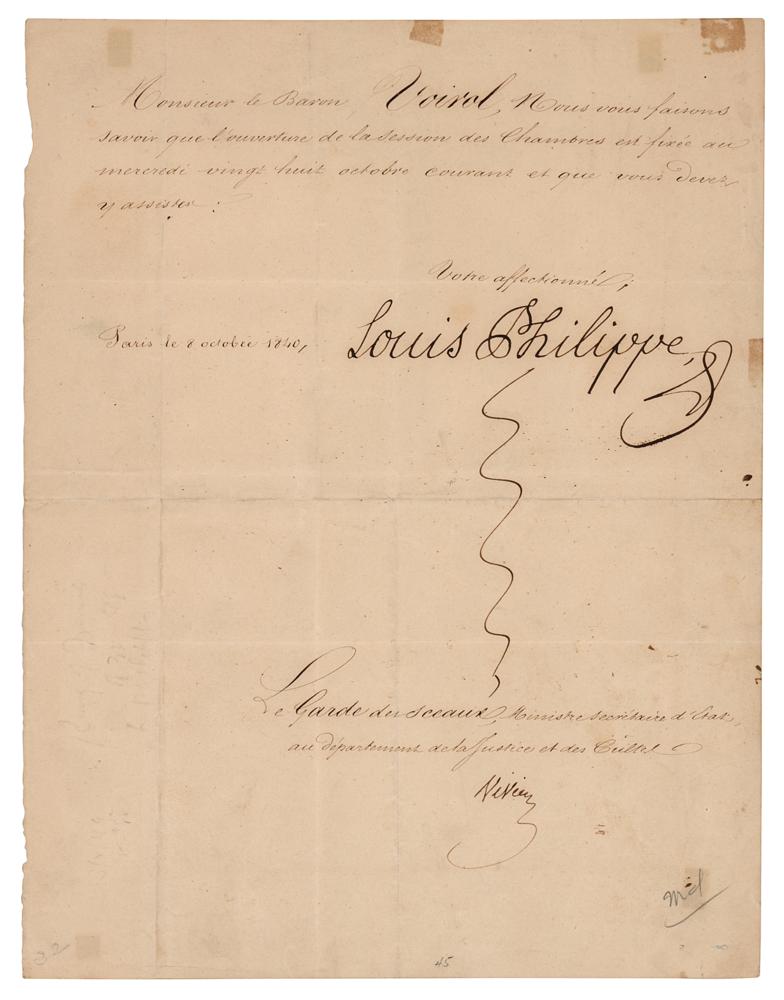 Monsieur le Baron, Voirol, Nous vous faisons
savoir que l'ouverture de la session des Chambres est fixée au
mercredi vingt huit octobre courant et que vous devez
y assister.
Votre affectionné,
Paris le 8 octobre 1840,
Louis Philippe
Le Garde des Sceaux, Ministre secrétaire d'Etat,
au département de la Justice et des Cultes
Vivien
32
45